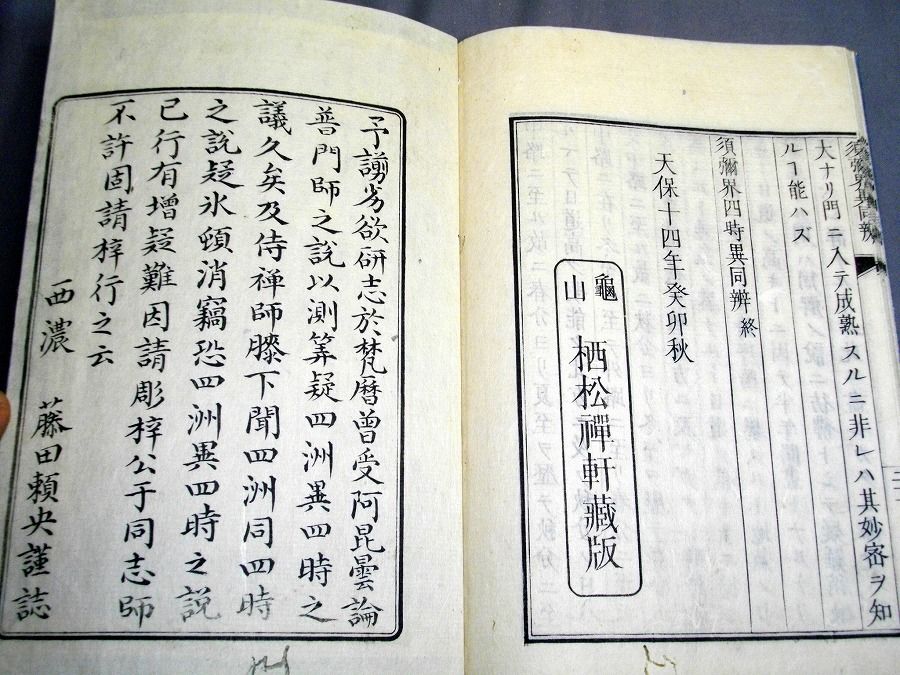 大ナリ門ニ入テ成熟スルニ非レハ其妙密ヲ知
ルヿ能ハズ
須彌界四時異同辨 終
天保十四年癸卯秋
龜山 栖松禪軒藏版
予謭劣欲硏志於梵曆曾受阿毘曇論
普門師之說以測筭疑四洲異四時之
議久矣及侍禪師膝下聞四洲同四時
之說疑氷頓消竊恐四洲異四時之說
已行有增疑難因請彫梓公于同志師
不許固請梓行之云
西濃 藤田賴央謹誌